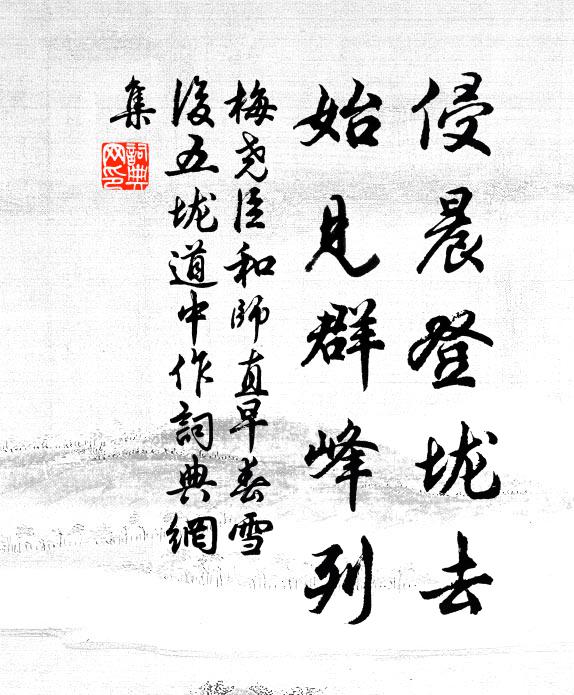 侵晨登垅去
始見群峰列
梅尧臣和師直早春雪
後五垅道中作詞典網
集
詞典
网印